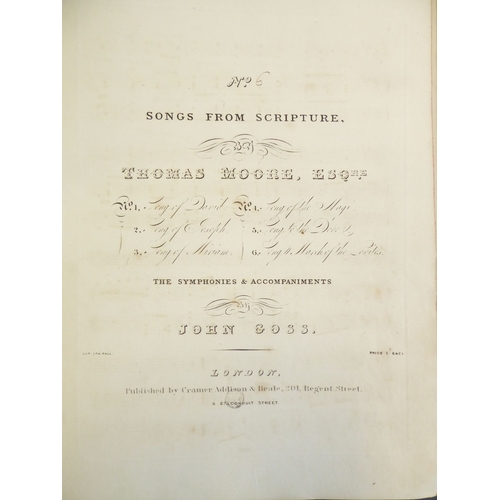 No. 6
SONGS FROM SCRIPTURE,
BY
THOMAS MOORE, ESQRE
No. 1. Song of David. No. 4. Song of the Magi.
2. Song of Joseph. 5. Song to the
3. Song of Miriam. 6. Song & March of the
THE SYMPHONIES & ACCOMPANIMENTS
BY
JOHN GOSS.
PRICE
LONDON,
Published by Cramer, Addison & Beale, 201, Regent Street,
& 67, CONDUIT STREET.